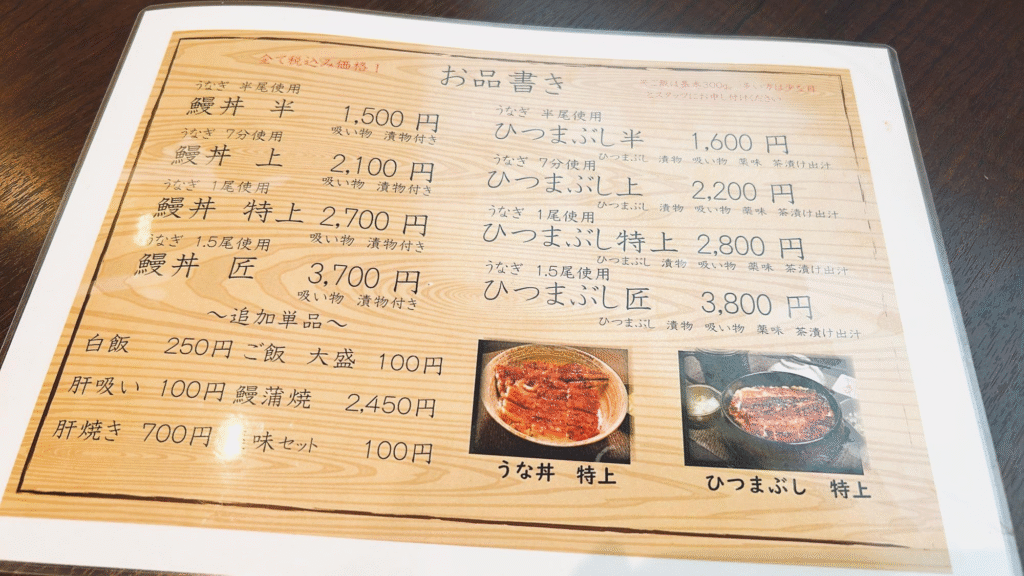 全て税込み価格！
お品書き
※ご飯は基本300g。多い方は少な目
とスタッフにお申し付けください
うなぎ 半尾使用
鰻丼 半 1,500 円
吸い物 漬物付き
うなぎ 7分使用
鰻丼 上 2,100 円
吸い物 漬物付き
うなぎ 1尾使用
鰻丼 特上 2,700 円
吸い物 漬物付き
うなぎ 1.5尾使用
鰻丼 匠 3,700 円
吸い物 漬物付き
～追加単品～
白飯 250円 ご飯 大盛 100円
肝吸い 100円 鰻蒲焼 2,450円
肝焼き 700円 味セット 100円
うなぎ 半尾使用
ひつまぶし半 1,600 円
ひつまぶし 漬物 吸い物 薬味 茶漬け出汁
うなぎ 7分使用
ひつまぶし上 2,200 円
ひつまぶし 漬物 吸い物 薬味 茶漬け出汁
うなぎ 1尾使用
ひつまぶし特上 2,800 円
ひつまぶし 漬物 吸い物 薬味 茶漬け出汁
うなぎ 1.5尾使用
ひつまぶし匠 3,800 円
ひつまぶし 漬物 吸い物 薬味 茶漬け出汁
うな丼 特上
ひつまぶし 特上